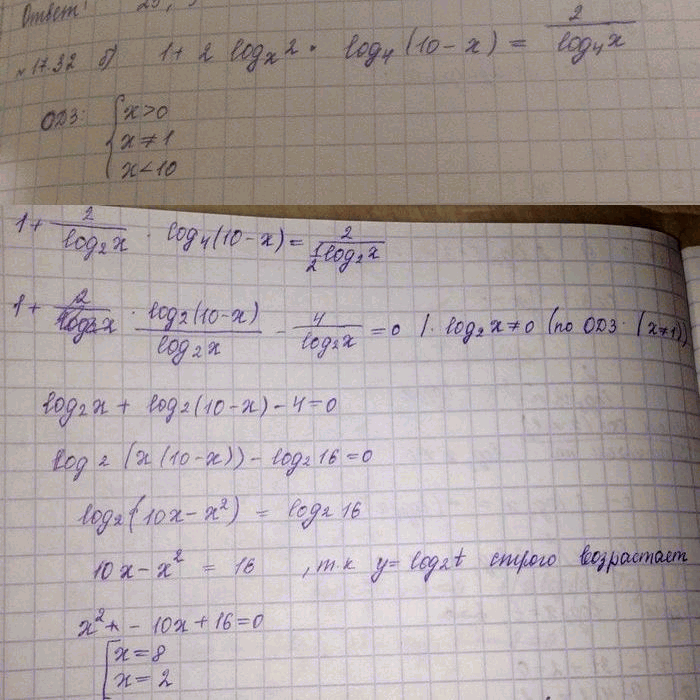 Ответ:
№17.32 б) 1 + 2 log_x 2 · log_4 (10 - x) = 2/(log_4 x)
ОДЗ: { x > 0
x ≠ 1
x < 10
1 + 2/(log_2 x) · log_4 (10 - x) = 2/(1/2 log_2 x)
1 + · (log_2 (10 - x))/(log_2 x) - 4/(log_2 x) = 0 | · log_2 x ≠ 0 (по ОДЗ (x ≠ 1))
log_2 x + log_2 (10 - x) - 4 = 0
log_2 (x (10 - x)) - log_2 16 = 0
log_2 (10x - x²) = log_2 16
10x - x² = 16 , т.к y = log_2 t строго возрастает
x² - 10x + 16 = 0
[ x = 8
x = 2